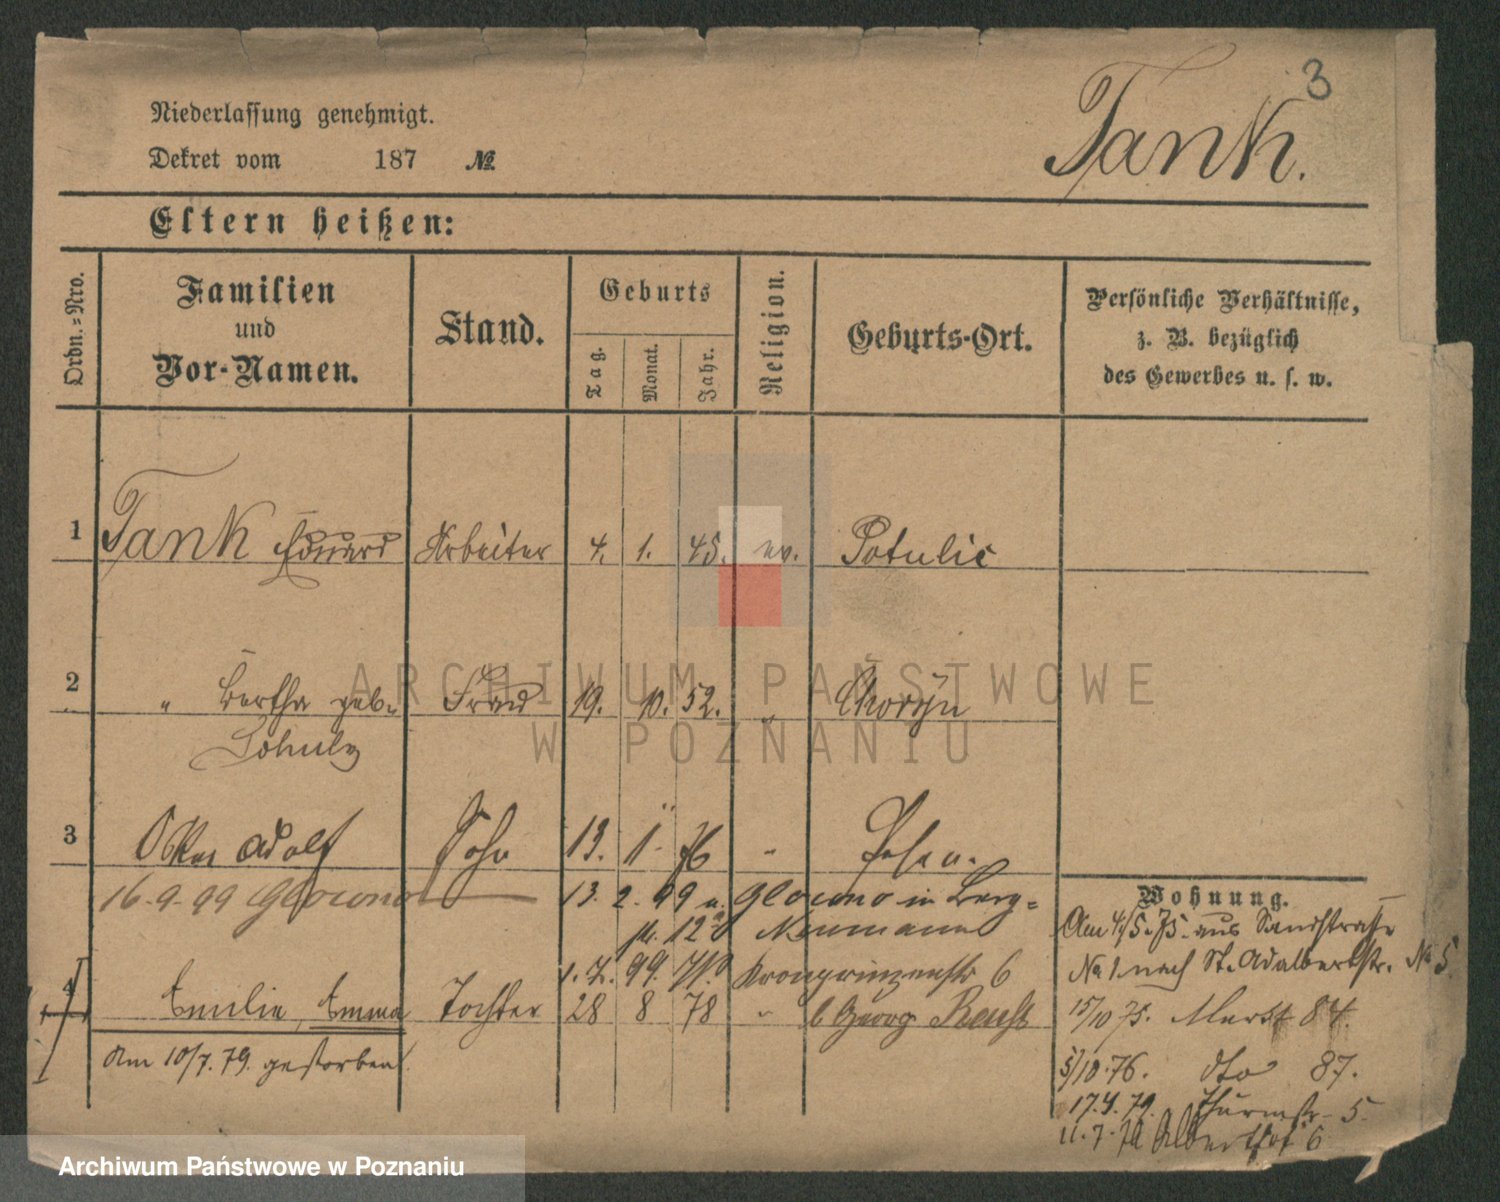 3
Niederlassung genehmigt.
Tank.
Dekret vom 187 №
Eltern heißen:
Ordn.=Nro.
Familien
und
Vor-Namen.
Stand.
Geburts
Tag.
Monat.
Jahr.
Religion.
Geburts-Ort.
Persönliche Verhältnisse,
z. B. bezüglich
des Gewerbes u. s. w.
1 Tank Eduard Arbeiter 4. 1. 45. ev. Potulic
2 " Bertha geb. Frau 19. 10. 52. " Choryn
Schulz
3 Oskar Adolf Sohn 13. 1. 76 " Posen.
16.9.99 Glowno 13. 2. 99 u. Glowno in Berg=
Neumann
99. Kronprinzenstr 6
4 Emilie, Emma Tochter 28 8 78 " b Georg
Am 10/7. 79. gestorben.
Wohnung.
Am 4/5. 75. aus Sandstrasse
No 1. nach St. Adalbertstr. No 5.
15/10 75. Markt 84.
5/10.76. dto 87.
17.4.79. Thurmstr. 5.
11.7.79 6
ARCHIWUM PAŃSTWOWE
W POZNANIU
Archiwum Państwowe w Poznaniu